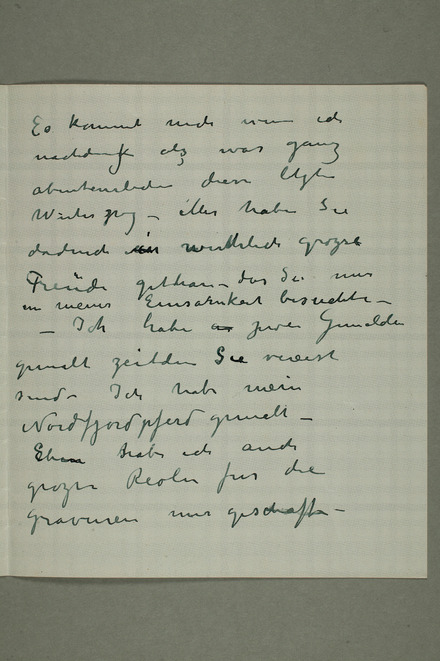 Es kommt mich wenn ich
nachdenke als was ganz
abenteuerliches diese
Winter – alles haben Sie
dadurch wirklich grosse
Freude gethan – das Sie mir
in meiner Einsamkeit besuchte –
– Ich habe zwei Gemälde
gemalt zeitdem Sie vereist
sind – Ich habe mein
Nordfjordpferd gemalt –
Eben habe ich auch
grosse Reoler für die
gravuren mir geschafft –